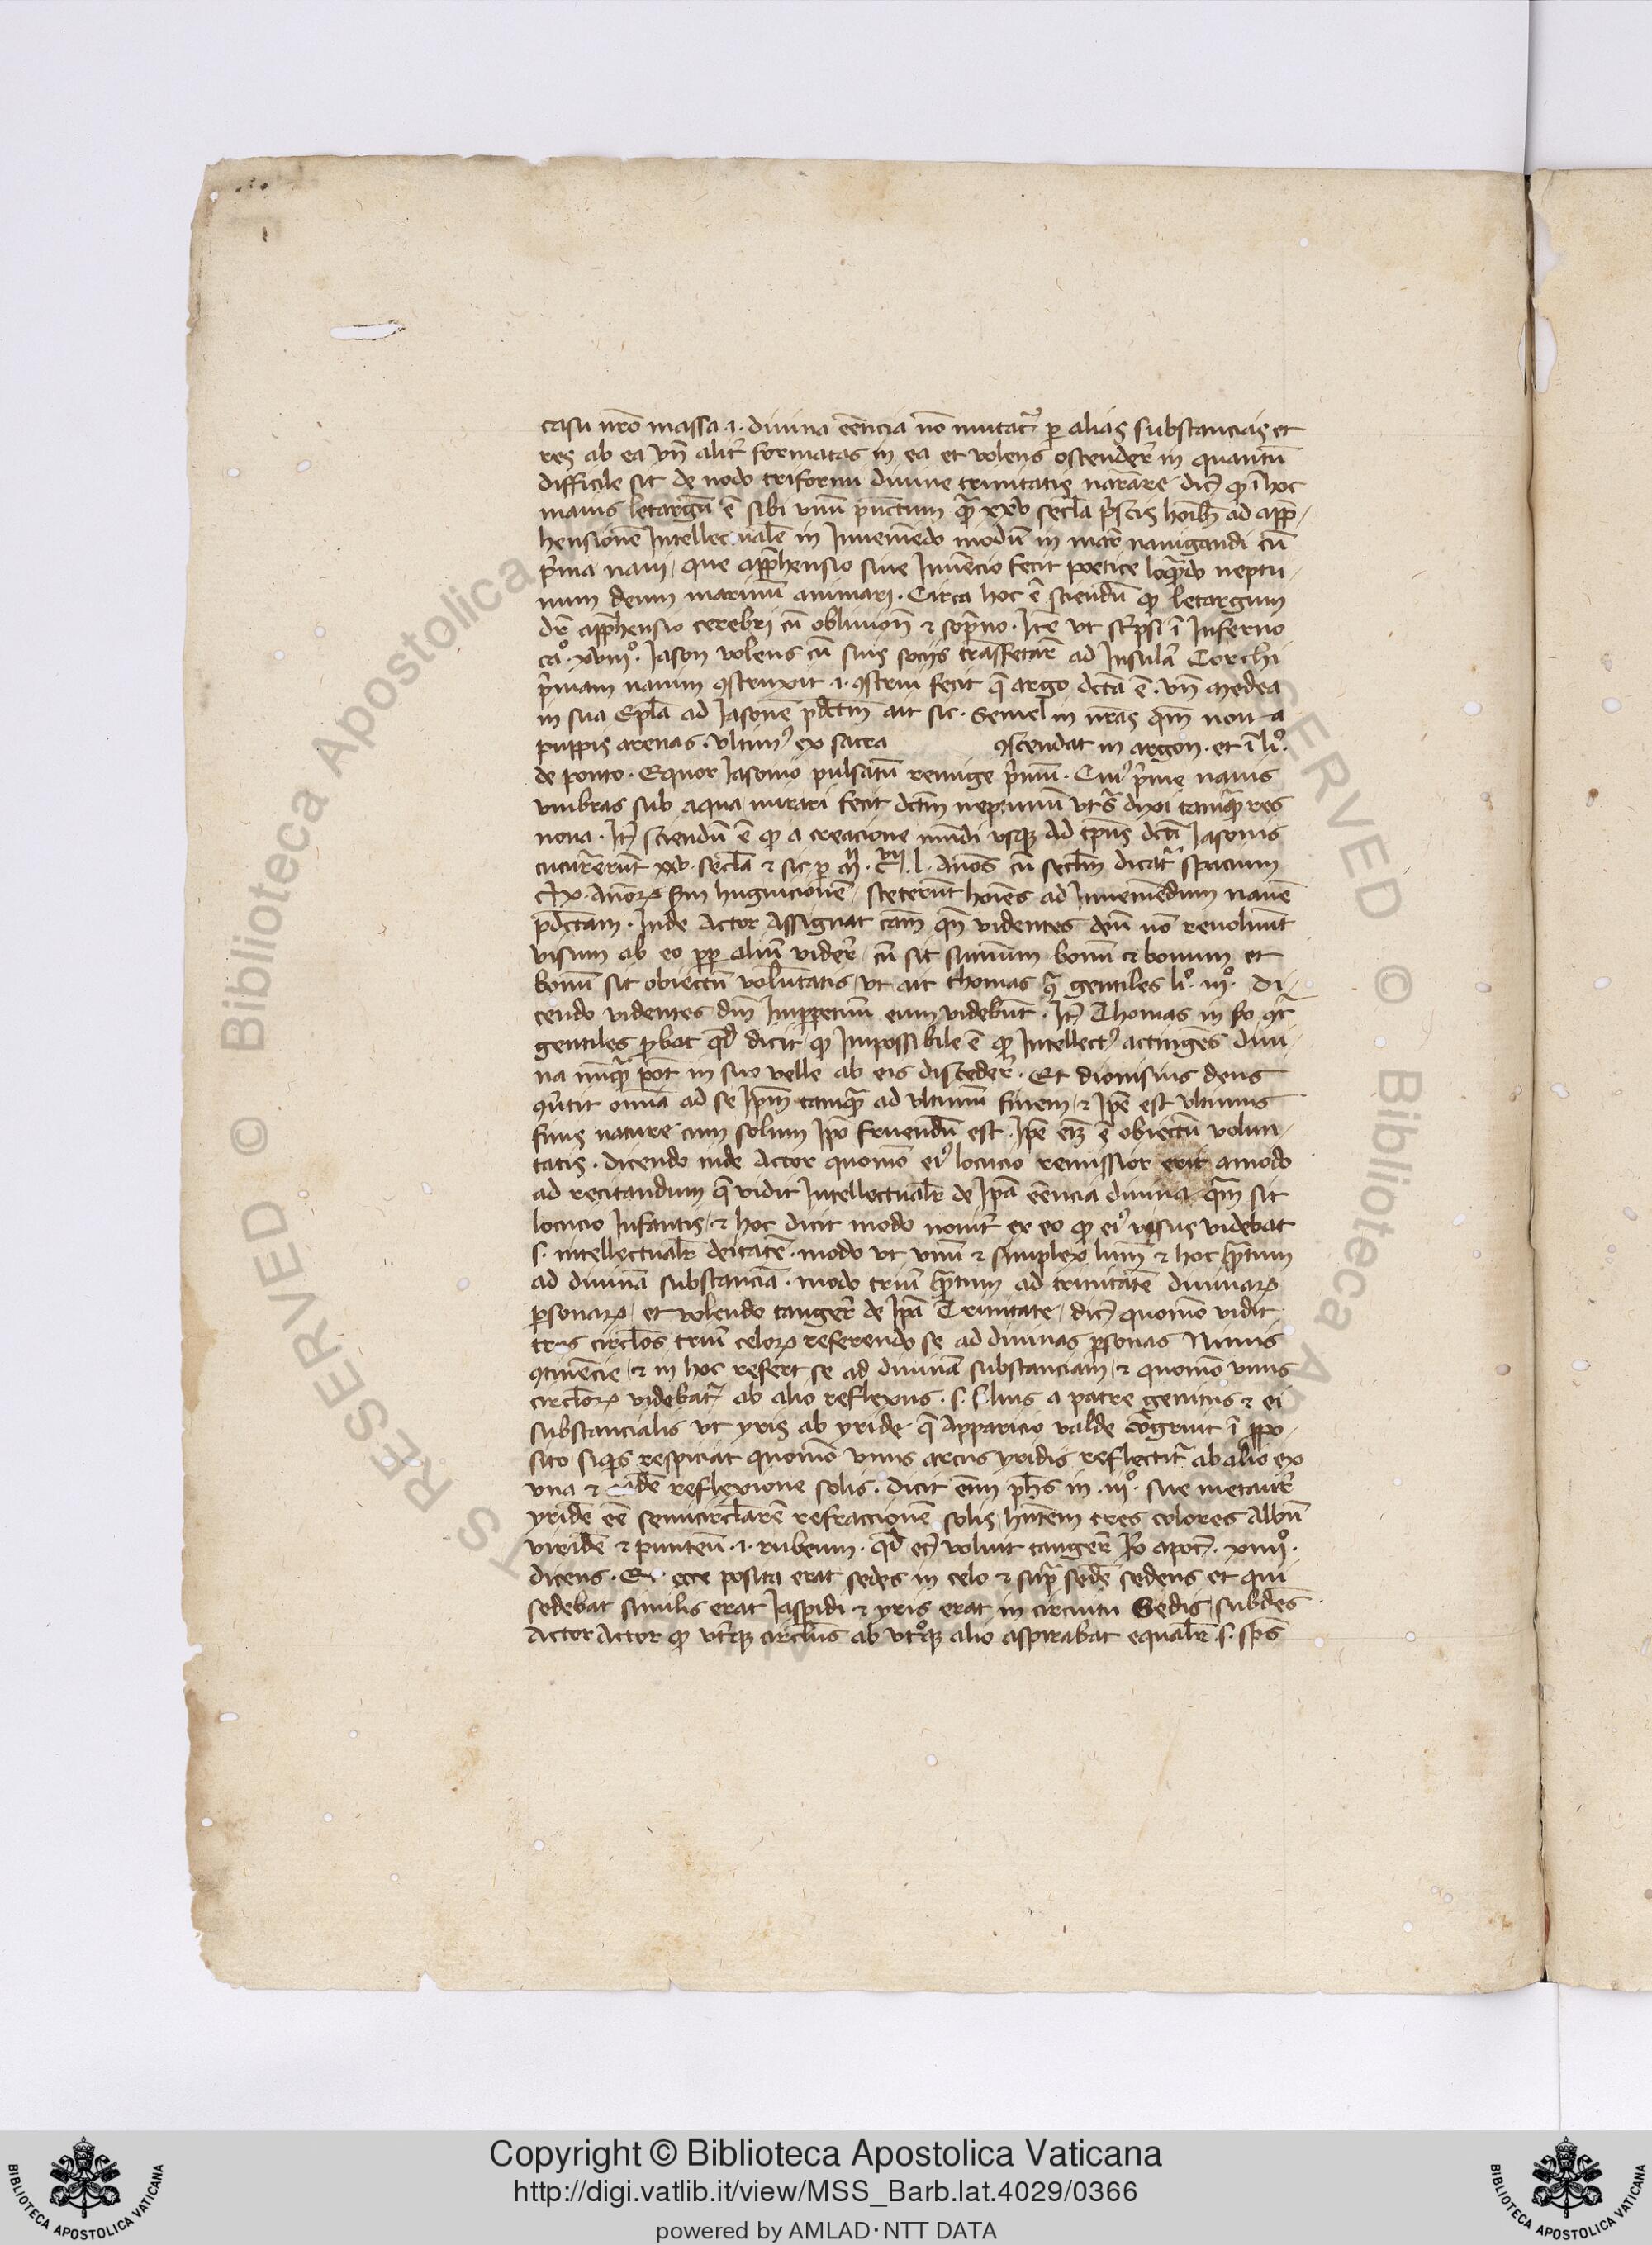 casu nr̄o massa .i. diuina eēncia nō mutat᷑ ꝑ alias substancias et
res ab ea vn̄ alit̕ formatas in ea et volens ostender̄ in quantū
difficile sit de nodo triformi diuine trinitatis narrare dic̄ ꝙ ī hoc
maius letargū ē sibi vnū punctum qͣ xxv secl̄a pͥscis hoīb; ad app̄-
hensionē Intellectualē in Inueniēdo modū in mar̄ nauigandi cū
pͥma naui que app̄hensio siue Inuēcio fecit poetice loq̄ndo neptu-
num deum marinū amirari . Circa hoc ē sciendū ꝙ letargum
dr̄ app̄hensio cerebri cū obliuion̄ ⁊ sopno . Itē vt scͥpsi ī Inferno
cao. xviiio. Iason volens cū suis socijs trāsfretar̄ ad Insulā Corchi
pͥmam nauim ꝯstruxit .i. ꝯstrui fecit q̄ argo dc̄ta ē . vn̄ medea
in sua Epl̄a ad Iasonē p̄dc̄tm ait sic . Semel in nr̄as qm̄ noua
puppis arenas . Vltimꝰ ex sacra ꝯscendat in argon . et ī lio.
de ponto . Equor Iasonio pulsatū remige pͥmū . Cuiꝰ pͥme nauis
vmbras sub aqua mirari fecit dc̄tm neptunū vt sͣ dixi tamqͣ res
noua . It̄ sciendū ē ꝙ a creacione mūdi vsq; ad tp̄us dc̄ti Iasonis
cucurrerūt xxv . secl̄a ⁊ sic ꝑ l . Anos cū secl̄m dicat᷑ spacium
Anorꝝ scd̄m huguicionē steterūt hoīes ad Inueniēdum nauē
p̄dc̄tam . Inde Actor Assignat cām qn̄ videntes deū nō reuoluūt
visum ab eo ꝓp aliū vider̄ cū sit summum bonū ⁊ bonum et
bonū sit obiectū volūtatis vt ait thomas ꝯͣ gentiles lio. iiio. Di-
cendo videntes dm̄ Imperpetuū eum videbūt . It̄ Thomas in ꝯͣ
gentiles ꝓbat qd̄ dicit ꝙ Impossibile ē ꝙ Intellectꝰ actingēs diui-
na nūqͣ pōt in suo velle ab eis disceder̄ . Et dionisius deus
ꝯūtit omnia ad se Ipm̄ tamqͣ ad vltimū finem ⁊ Ipē est vltimus
finis nature cum solum Ipō fruendū est . Ipē etꝫ ē obiectū volun-
tatis . Dicendo inde Actor quomō eiꝰ locucio remissior erit amodo
ad recitandum q̄ vidit Intellectualr̄ de Ipā eēncia diuina qͣm sit
locucio Infantis ⁊ hoc dicit modo nouit̕ ex eo ꝙ eiꝰ visus videbat
s. intellectualr̄ deitatē . modo vt vnū ⁊ simplex lumē ⁊ hoc qͣntum
ad diuinā substanciā . modo triū qͣntum ad trinitatē diuinarꝝ
ꝑsonarꝝ et volendo tanger̄ de Ipā Trinitate dic̄ quomō vidit
tres circl̄os triū celorꝝ referendo se ad diuinas ꝑsonas Vnius
ꝯtinēcie ⁊ in hoc refert se ad diuinā substanciam ⁊ quomō vnus
circl̄orꝝ videbat᷑ ab alio reflexus . s. filius a patre genitus ⁊ ei
substancialis vt yris ab yride q̄ Apparicio valde cōgruit ī ꝓpo-
sito siqͥs respiciat quomō vnus arcus yridis reflectit᷑ ab alio ex
vna ⁊ eadē reflexione solis . Dicit eīm ph̄s in . iiio. sue metaur̄
yridē eē semicircl̄arē refraccionē solis hn̄tem tres colores Albū
viridē ⁊ puniceū .i. rubeum . qd̄ ec̄ voluit tanger̄ Io apoc̄ . iiiio.
dicens . Et ecce posita erat sedes in celo ⁊ supͣ sedē sedens et qui
sedebat similis erat Iaspidi ⁊ yris erat in circuitu Sedis subdēs
Actor Actor ꝙ vt̕q; circl̄us ab vtoq; alio aspirabat equalr̄ .s. sp̄s
Copyright © Biblioteca Apostolica Vaticana
http://digi.vatlib.it/view/MSS_Barb.lat.4029/0366
powered by AMLAD·NTT DATA